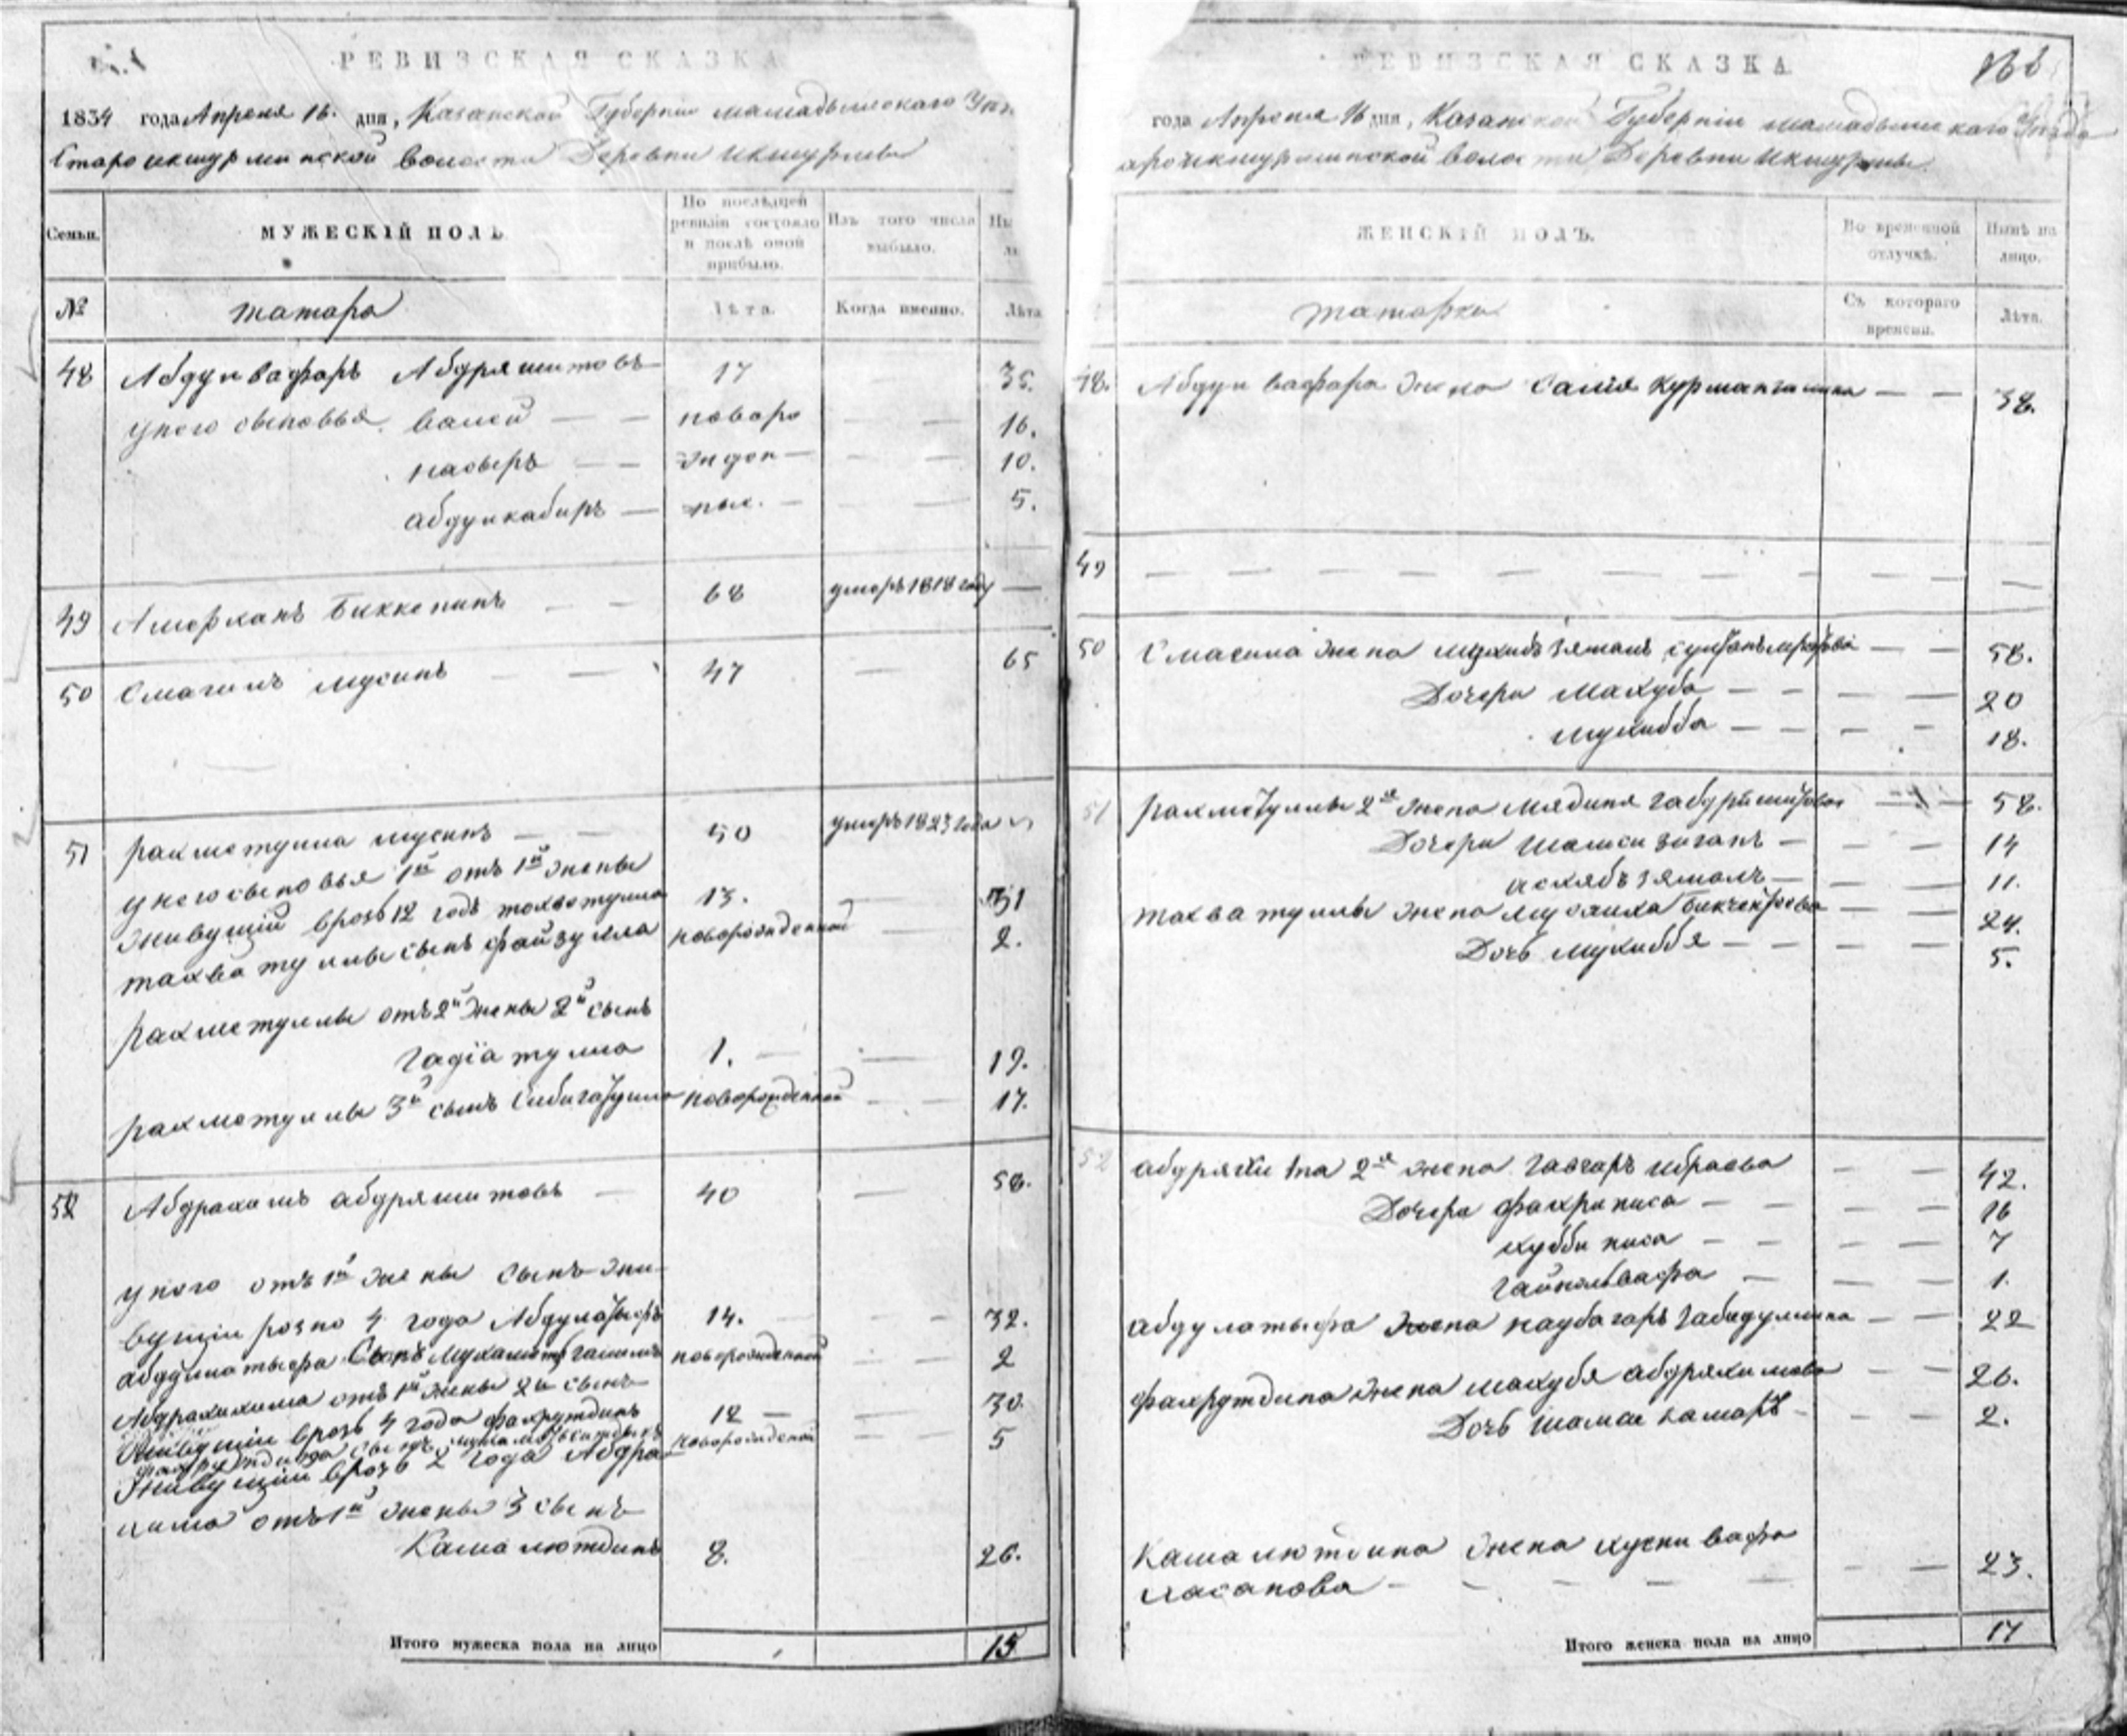 РЕВИЗСКАЯ СКАЗКА
1834 года Апреля 16. дня, Казанской Губернiи мамадышскаго
Староикшурминской волости Деревни икшурмы
Семьи.
МУЖЕСКІЙ ПОЛЪ
По послѣдней ревизіи состояло и послѣ оной прибыло.
Изъ того числа выбыло.
№
татара
Лѣта.
Когда именно.
Лѣта
48 Абдулвафаръ Абдряшитовъ 17 35.
унего сыновья. валей — — новоро — — 16.
насыръ — — жден — — — 10.
абдулкабиръ — ные. — — — 5.
49 Амерханъ Биккенинъ — — 68 умеръ 1818 году —
50 Смагилъ мусинъ — — 47 — 65
51 рахметулла мусинъ — — 50 умеръ 1823 года
унего сыновья 1й отъ 1й жены
живущій врозь 12 годъ тохватулла 13. — 31
тахватуллы сынъ файзулла новорожденной — 2.
рахметуллы отъ 2й жены 2й сынъ
гадіатулла 1. — — 19.
рахметуллы 3й сынъ Сибигатулла новорожденной — — 17.
52 Абдрахимъ абдряшитовъ — 40 — 58.
унего отъ 1й жены сынъ жи-
вущiи розно 4 года Абдулатыфъ 14. — — — 32.
абдулатыфа Сынъ новорожденной — — 2
Абдрахихима отъ 1й жены 2й сынъ
Живущiи врозь 4 года фахрутдинъ 12 — — 30.
фахрутдина сынъ новорожденной — — 5
Живущiи врозь 2 года Абдра-
хима отъ 1й жены 3 сынъ
Камалютдинъ 8. 26.
Итого мужеска пола на лицо 15
РЕВИЗСКАЯ СКАЗКА
года Апреля 16 дня, Казанской Губернiи мамадышскаго Уезда
ароикшурминской волости Деревни Икшурмы.
ЖЕНСКІЙ ПОЛЪ.
Во временной отлучкѣ.
Нынѣ на лицо.
татарки
Съ котораго времени.
Лѣта.
48. Абдулвафара жена Салiя Курмангалина — — 38.
49 — — — — — — — — — —
50 Смагила жена — — 58.
Дочери Махуба — — — — 20
мухибба — — — — 18.
51 рахметуллы 2я жена Мядиня габдряшитова — — 58.
Дочери шамсизиганъ — — — 14
аскябъзямалъ — — — 11.
тахватуллы жена — — 24.
Дочь мухиббя — — — — 5.
52 2я жена гавгаръ ибраева — — 42.
Дочери фахриниса — — — — 16
хуббиниса — — — — 7
гайнольвафа — — — 1.
абдулатыфа жена наубагаръ габидуллина — — 22
фахрутдина жена махубя абдряхимова — — 26.
Дочь шамси камаръ — — — 2.
Камалютдина жена хуснивафа
хасанова — — — — — — — 23.
Итого женска пола на лицо 17